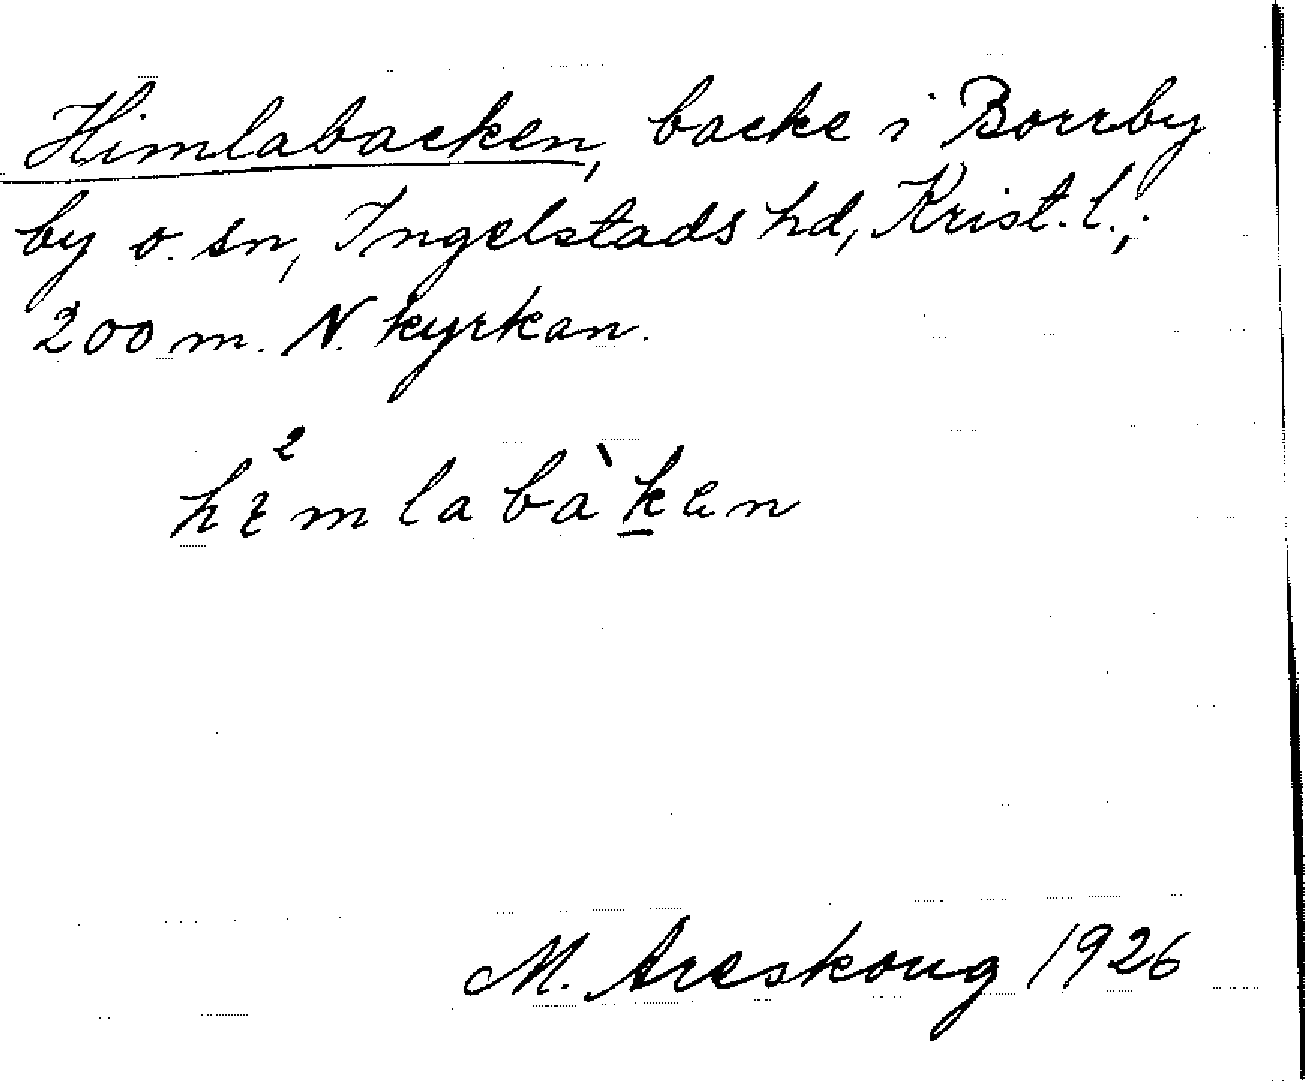 Himlabacken, backe i Borrby
by o. sn, Ingelstads hd, Krist. l.;
200 m. N. kyrkan.
hɪ²mlabàk̲en
M. Areskoug 1926